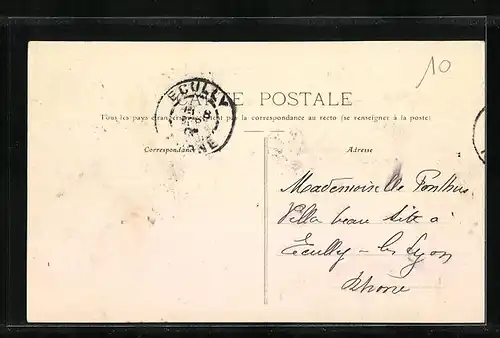 10
CARTE POSTALE
Tous les pays étrangers n'acceptent pas la correspondance au recto (se renseigner à la poste)
ECULLY
RHONE
Correspondance
Adresse
Mademoiselle Ponthus
Villa beau Site à
Ecully - les Lyon
Rhône